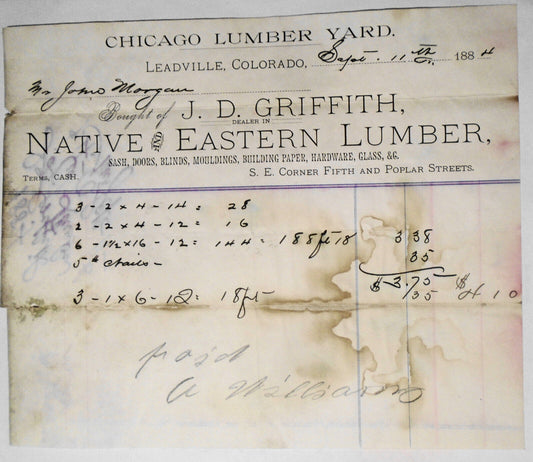 CHICAGO LUMBER YARD.
LEADVILLE, COLORADO, Sept. 11th, 1884
Mr John Morgan
Bought of J. D. GRIFFITH,
DEALER IN
NATIVE AND EASTERN LUMBER,
SASH, DOORS, BLINDS, MOULDINGS, BUILDING PAPER, HARDWARE, GLASS, &G.
TERMS, CASH. S. E. CORNER FIFTH AND POPLAR STREETS.
3-2x4-14= 28
2-2x4-12= 16
6-1½x16-12= 144= 188ft 18 3 38
5# Nails- 35
$3.75
3-1x6-12= 18ft 35 $4 10
paid
A Williams